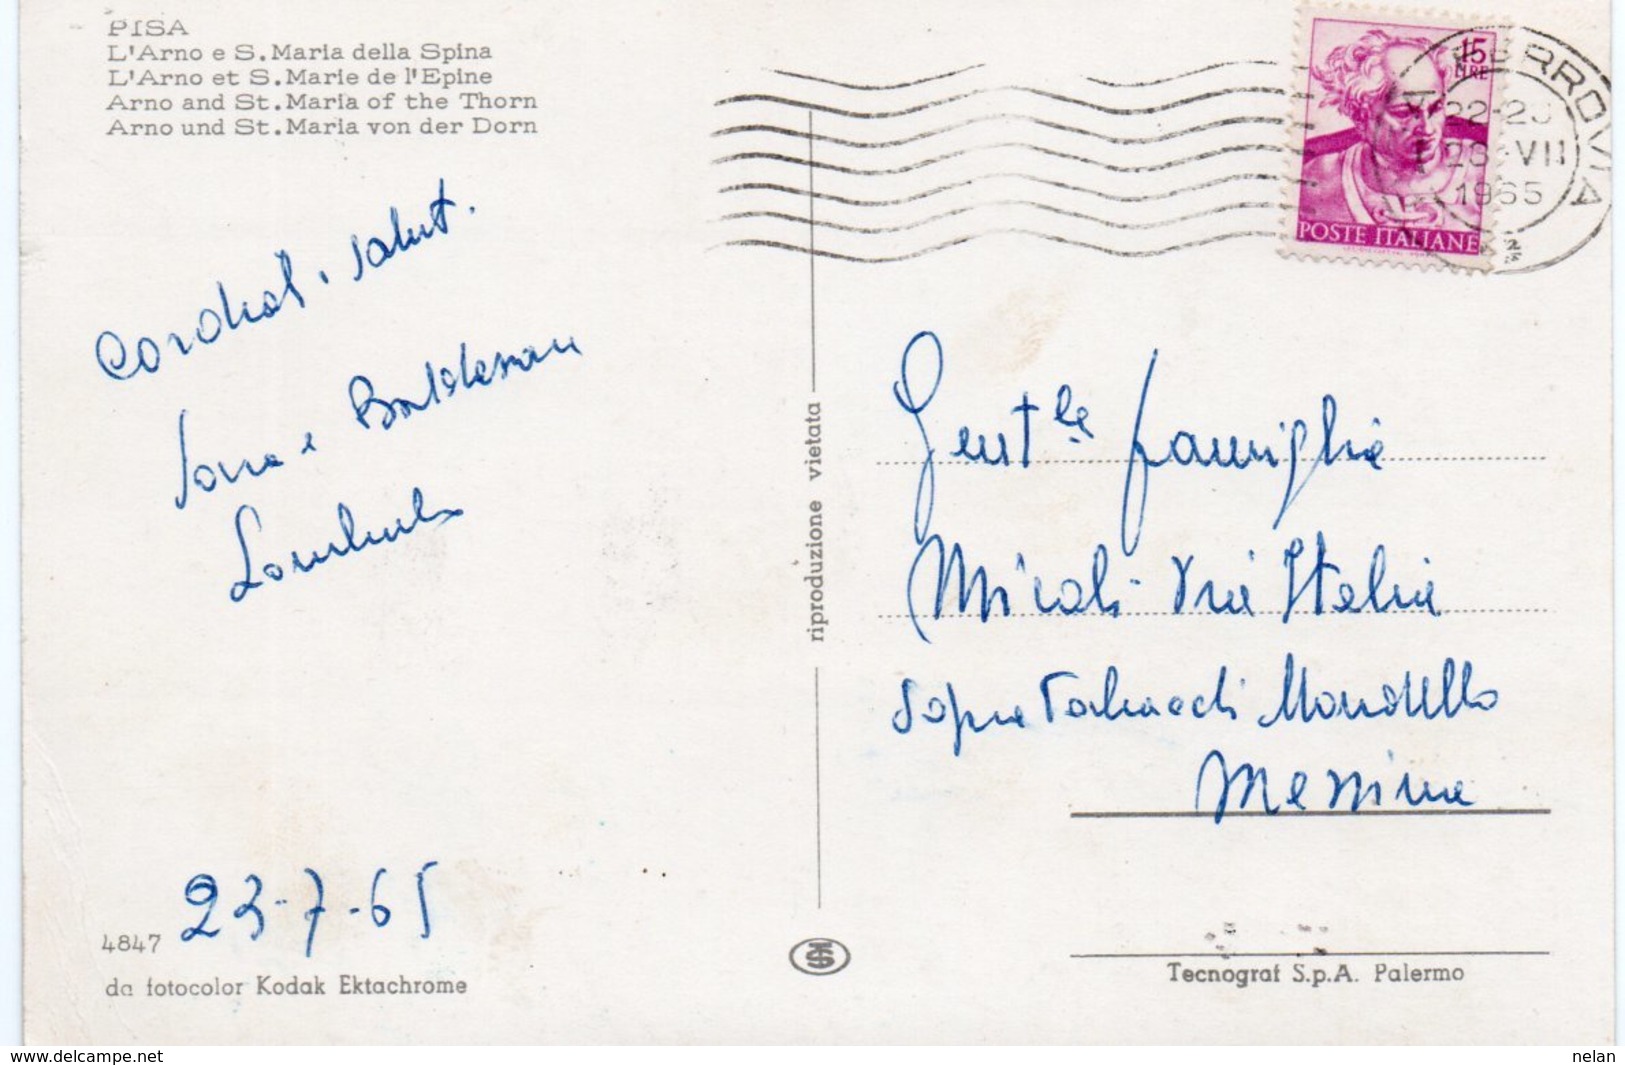 PISA
L'Arno e S. Maria della Spina
L'Arno et S. Marie de l'Epine
Arno and St. Maria of the Thorn
Arno und St. Maria von der Dorn
15
LIRE
POSTE ITALIANE
FERROVIA
VII
1965
Cordiali saluti
e
riproduzione vietata
Gent.le famiglia
Micali Via Italia
Messina
23-7-65
4847
da fotocolor Kodak Ektachrome
Tecnograf S.p.A. Palermo
www.delcampe.net
nelan